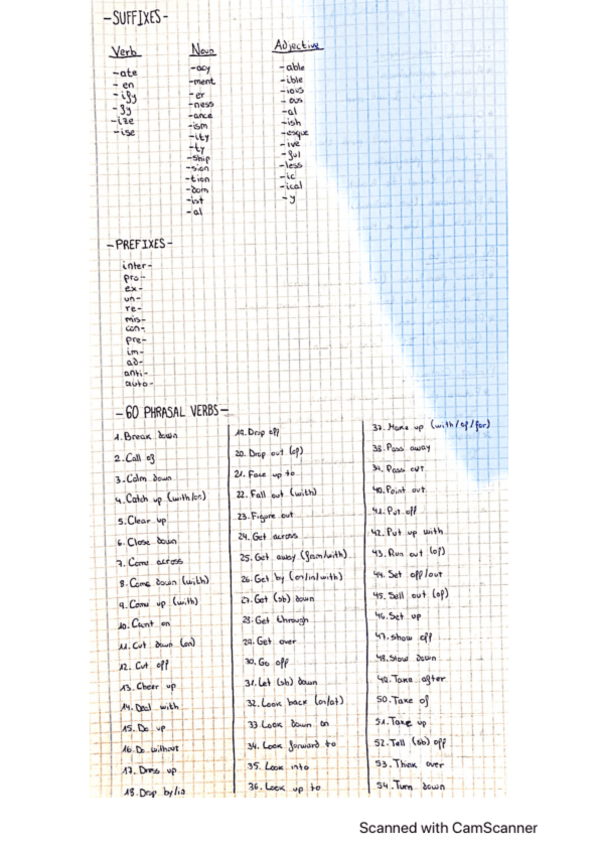 -SUFFIXES-
Verb
-ate
-en
-ify
-fy
-ize
-ise
Noun
-acy
-ment
-er
-ness
-ance
-ism
-ity
-ty
-ship
-sion
-tion
-dom
-ist
-al
Adjective
-able
-ible
-ious
-ous
-al
-ish
-esque
-ive
-ful
-less
-ic
-ical
-y
-PREFIXES-
inter-
pro-
ex-
un-
re-
mis-
con-
pre-
im-
ad-
anti-
auto-
-60 PHRASAL VERBS-
1. Break down
2. Call of
3. Calm down
4. Catch up (with/on)
5. Clear up
6. Close down
7. Come across
8. Come down (with)
9. Come up (with)
10. Count on
11. Cut down (on)
12. Cut off
13. Cheer up
14. Deal with
15. Do up
16. Do without
17. Dress up
18. Drop by/in
19. Drop off
20. Drop out (of)
21. Face up to
22. Fall out (with)
23. Figure out
24. Get across
25. Get away (from/with)
26. Get by (on/in/with)
27. Get (sb) down
28. Get through
29. Get over
30. Go off
31. Let (sb) down
32. Look back (on/at)
33 Look down on
34. Look forward to
35. Look into
36. Look up to
37. Make up (with/of/for)
38. Pass away
39. Pass out
40. Point out
41. Put off
42. Put up with
43. Run out (of)
44. Set off/out
45. Sell out (of)
46. Set up
47. Show off
48. Slow down
49. Take after
50. Take of
51. Take up
52. Tell (sb) off
53. Think over
54. Turn down
Scanned with CamScanner